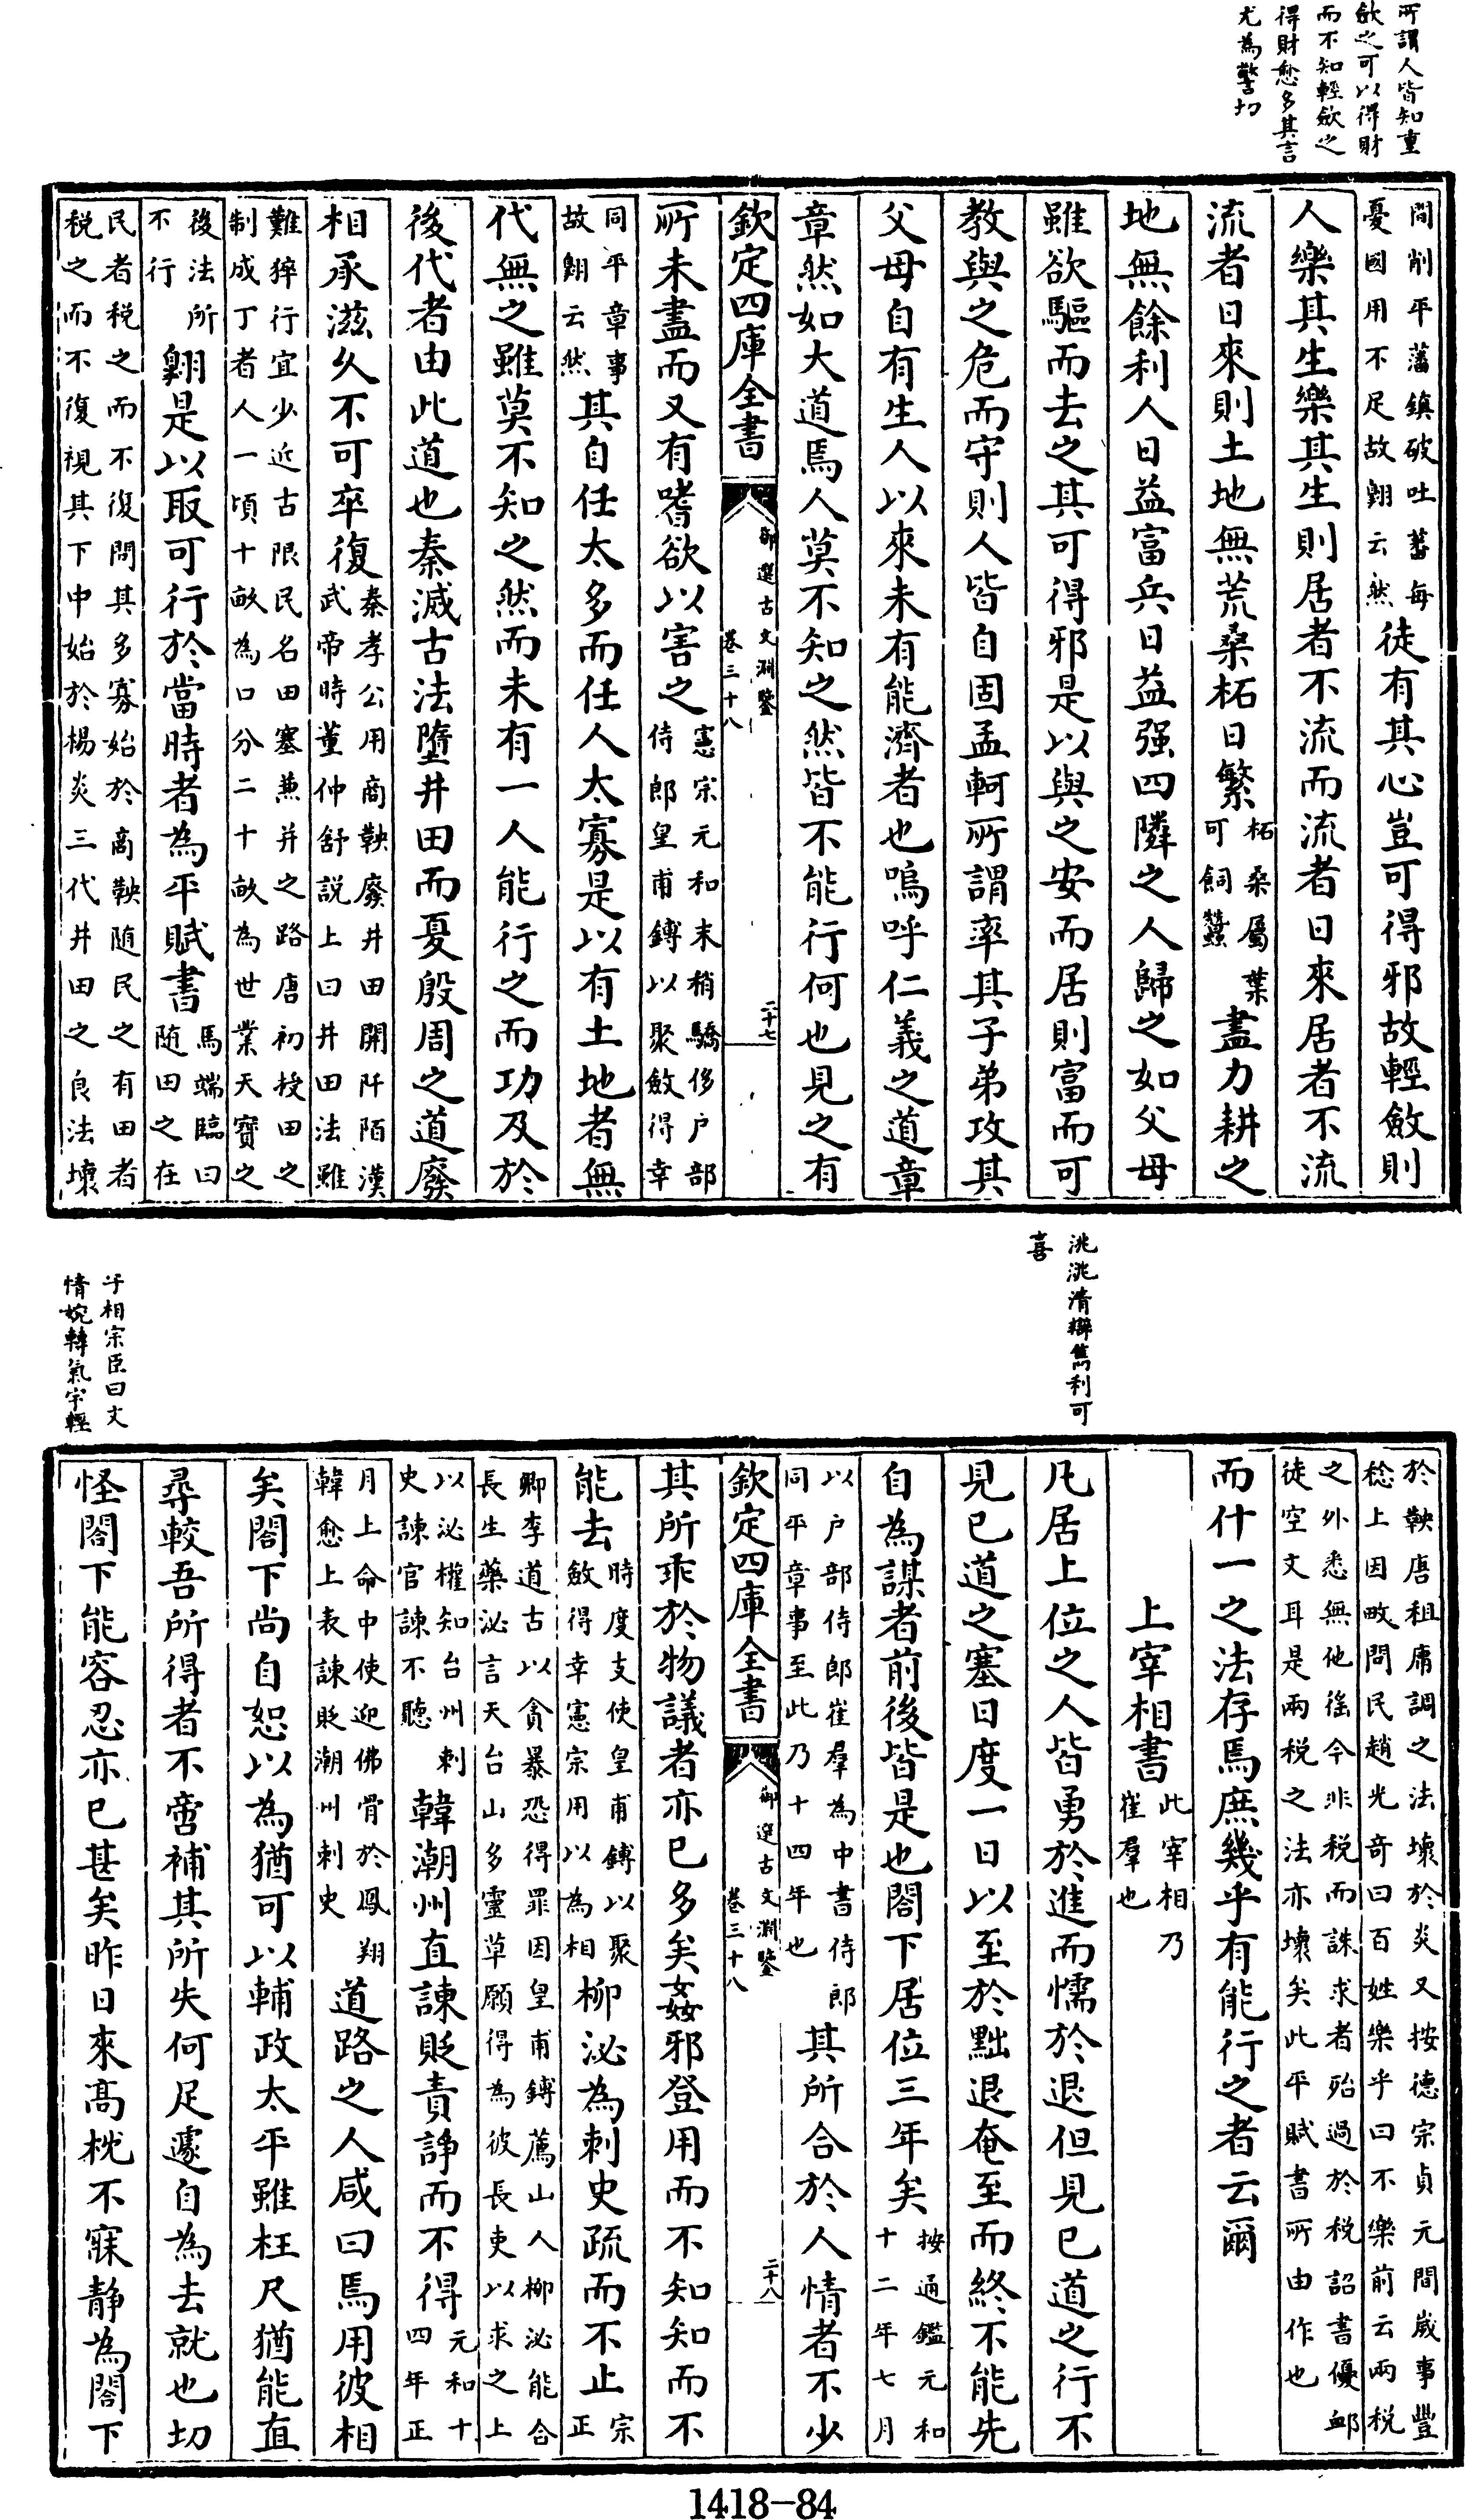 所謂人皆知重
斂之可以得財
而不知輕斂之
得財愈多其言
尤為警切
間削平藩鎮破吐蕃每
憂國用不足故翺云然
徒有其心豈可得邪故輕斂則
人樂其生樂其生則居者不流而流者日來居者不流
流者日來則土地無荒桑柘日繁
柘桑屬葉
可飼蠶
盡力耕之
地無餘利人日益富兵日益强四隣之人歸之如父母
雖欲驅而去之其可得邪是以與之安而居則富而可
教與之危而守則人皆自固孟軻所謂率其子弟攻其
父母自有生人以來未有能濟者也嗚呼仁義之道章
章然如大道焉人莫不知之然皆不能行何也見之有
欽定四庫全書
御選古文淵鑒
卷三十八
二十七
所未盡而又有嗜欲以害之
憲宗元和末稍驕侈户部
侍郎皇甫鎛以聚斂得幸
同平章事
故翺云然
其自任太多而任人太寡是以有土地者無
代無之雖莫不知之然而未有一人能行之而功及於
後代者由此道也秦滅古法墮井田而夏殷周之道廢
相承滋久不可卒復
秦孝公用商鞅廢井田開阡陌漢
武帝時董仲舒説上曰井田法雖
難猝行宜少近古限民名田塞兼并之路唐初授田之
制成丁者人一頃十畝為口分二十畝為世業天寶之
後法所
不行
翺是以取可行於當時者為平賦書
馬端臨曰
随田之在
民者税之而不復問其多寡始於商鞅随民之有田者
税之而不復視其丁中始於楊炎三代井田之良法壞
洮洮清辯雋利可
喜
于相宗臣曰文
情婉轉氣宇輕
於鞅唐租庸調之法壞於炎又按德宗貞元間歲事豐
稔上因畋問民趙光奇曰百姓樂乎曰不樂前云兩税
之外悉無他徭今非税而誅求者殆過於税詔書優䘏
徒空文耳是兩税之法亦壞矣此平賦書所由作也
而什一之法存焉庶幾乎有能行之者云爾
上宰相書
此宰相乃
崔羣也
凡居上位之人皆勇於進而懦於退但見已道之行不
見已道之塞日度一日以至於黜退奄至而終不能先
自為謀者前後皆是也閤下居位三年矣
按通鑑元和
十二年七月
以户部侍郎崔羣為中書侍郎
同平章事至此乃十四年也
其所合於人情者不少
欽定四庫全書
御選古文淵鑒
卷三十八
二十八
其所乖於物議者亦已多矣姦邪登用而不知知而不
能去
時度支使皇甫鎛以聚
斂得幸憲宗用以為相
柳泌為刺史疏而不止
宗
正
卿李道古以貪暴恐得罪因皇甫鎛薦山人柳泌能合
長生藥泌言天台山多靈草願得為彼長吏以求之上
以泌權知台州刺
史諫官諫不聽
韓潮州直諫貶責諍而不得
元和十
四年正
月上命中使迎佛骨於鳳翔
韓愈上表諫貶潮州刺史
道路之人咸曰焉用彼相
矣閤下尚自恕以為猶可以輔政太平雖枉尺猶能直
尋較吾所得者不啻補其所失何足遽自為去就也切
怪閤下能容忍亦已甚矣昨日來高枕不寐静為閤下
1418-84